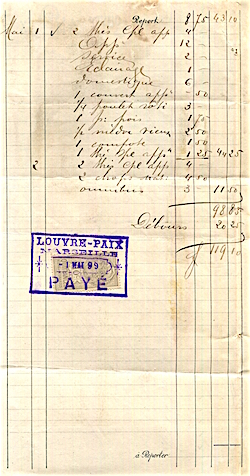 Report 8 75 43 10
Mai 1 2 thés cpl app 4
App 12
Service 2
Eclairage 1
Domestique 6
1 couvert app 50
1/4 poulet roti 3
1 p. pois 1 75
1/2 médoc vieux 2 50
1 compote 1 50
1 thé cpl app 1 25 44 25
2 2 thés cpl app 4
4 50
omnibus 3 11 50
98 85
Débours 20 25
119 10
LOUVRE-PAIX
MARSEILLE
1 MAI 99
PAYÉ
à Reporter